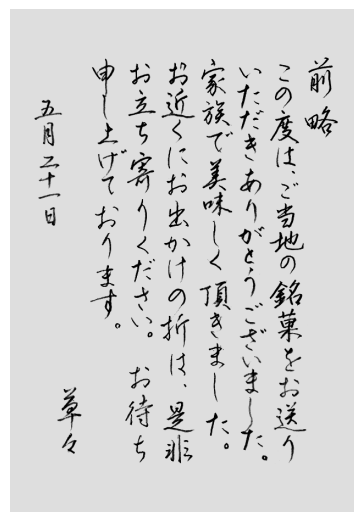 前略
この度は、ご当地の銘菓をお送り
いただきありがとうございました。
家族で美味しく頂きました。
お近くにお出かけの折は、是非
お立ち寄りください。お待ち
申し上げております。
五月二十一日
草々